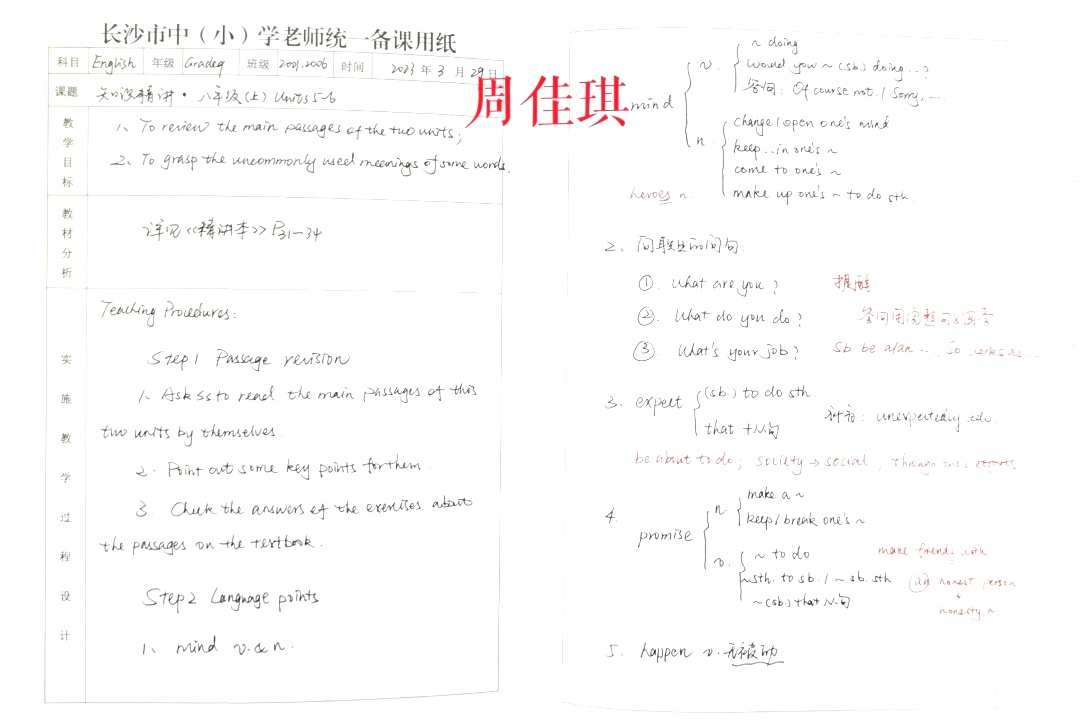 长沙市中（小）学老师统一备课用纸
科目 English 年级 Grade9 班级 2001.2006 时间 2023年3月29日
课题 知识精讲·八年级(上) Units 5-6
教学目标
1、To review the main passages of the two units;
2、To grasp the uncommonly used meanings of some words.
教材分析
详见《精讲本》P31-34
实施教学过程设计
Teaching Procedures:
Step 1 Passage revision
1. Ask Ss to read the main passages of this
two units by themselves.
2. Point out some key points for them.
3. Check the answers of the exercises about
the passages on the textbook.
Step 2 Language points
1、mind v. & n.
周佳琪
mind
v.
~ doing
Would you ~ (sb.) doing...?
答问: Of course not. / Sorry, ...
n.
change / open one's mind
keep...in one's ~
come to one's ~
make up one's ~ to do sth.
heroes n.
2、问职业的问句:
① What are you? 提醒
② What do you do? 答问用完整句
③ What's your job? sb. be a/an ...,
3. expect
(sb.) to do sth.
that + N.句
补充: unexpectedly adv.
be about to do; society → social,
4. promise
n.
make a ~
keep / break one's ~
v.
~ to do
~ sth. to sb. / ~ sb. sth.
~ (sb.) that N.句
make friends with
an honest person
honesty n
5. happen v. 无被动